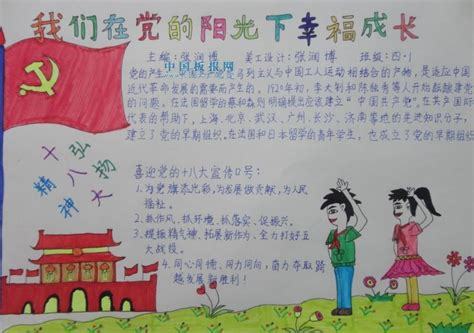 我们在党的阳光下幸福成长
主 张润博 美工设计：张润博 班级：四·1
中国板报网
党的产生 中国共产党是马列主义与中国工人运动相结合的产物，是适应中国
近代革命发展的需要而产生的。1920年初，李大钊和陈独秀等人开始酝酿建党
的问题。在法国留学的蔡和森则明确提出应该建立“中国共产党”。在共产国际
代表的帮助下，上海、北京、武汉、广州、长沙、济南等地的先进知识分子，
建立了党的早期组织。在法国和日本留学的青年学生，也成立了党的早期组织。
弘扬
十八大
精神
喜迎党的十八大宣传口号：
1.为党旗添光彩，为发展做贡献，为人民
福祉。
2.抓作风、抓环境、抓落实、促振兴。
3.提振精气神、拓展新作为、全力打好五
大战役。
4.同心同德、同力同向，奋力夺取跨
越发展新胜利！